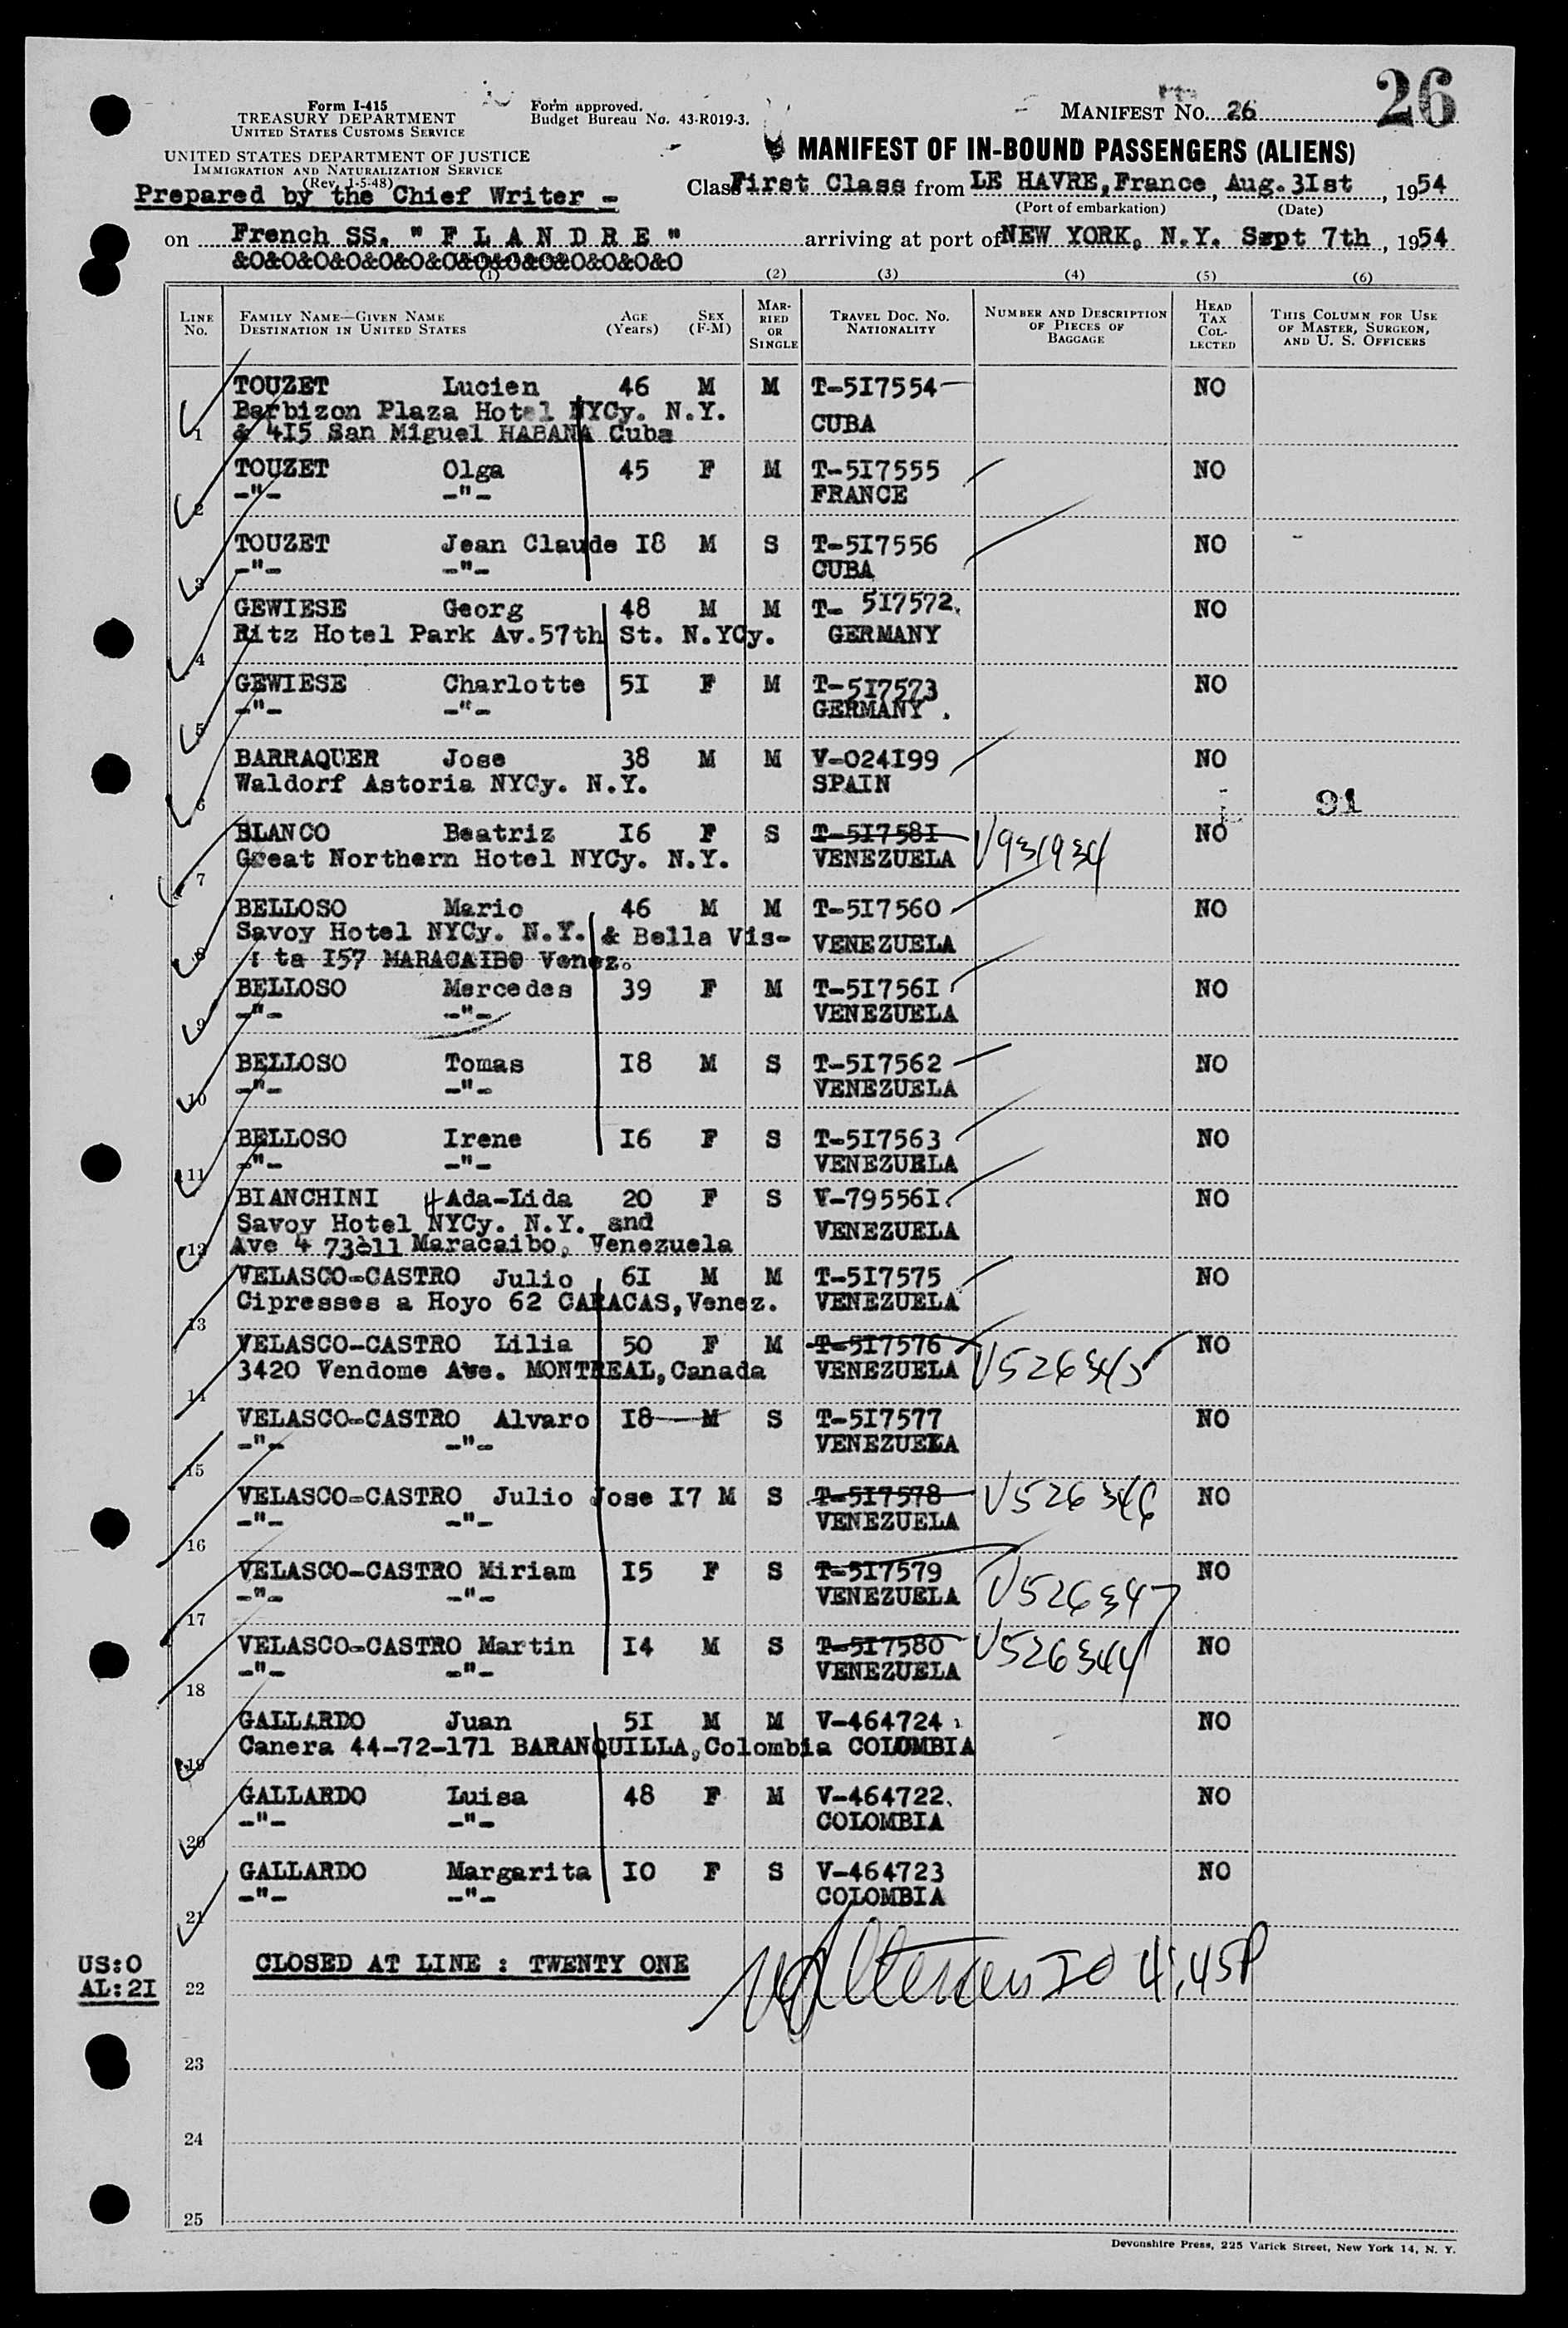 26
Form I-415
TREASURY DEPARTMENT
UNITED STATES CUSTOMS SERVICE
Form approved.
Budget Bureau No. 43-R019-3.
MANIFEST NO. 26
UNITED STATES DEPARTMENT OF JUSTICE
IMMIGRATION AND NATURALIZATION SERVICE
(Rev. 1-5-48)
MANIFEST OF IN-BOUND PASSENGERS (ALIENS)
Prepared by the Chief Writer -
Class First Class from LE HAVRE, France, Aug. 3Ist, 1954
(Port of embarkation) (Date)
on French SS. " F L A N D R E " arriving at port of NEW YORK, N.Y. Sept 7th, 1954
&O&O&O&O&O&O&O&O&O&O&O&O&O&O&O&O
(1) (2) (3) (4) (5) (6)
LINE No. FAMILY NAME—GIVEN NAME DESTINATION IN UNITED STATES AGE (Years) SEX (F-M) MARRIED OR SINGLE TRAVEL DOC. NO. NATIONALITY NUMBER AND DESCRIPTION OF PIECES OF BAGGAGE HEAD TAX COLLECTED THIS COLUMN FOR USE OF MASTER, SURGEON, AND U. S. OFFICERS
TOUZET Lucien 46 M M T-5I7554 NO
Barbizon Plaza Hotel NYCy. N.Y.
CUBA
1 & 4I5 San Miguel HABANA Cuba
TOUZET Olga 45 F M T-5I7555 NO
2 -"- -"- FRANCE
TOUZET Jean Claude I8 M S T-5I7556 NO
3 -"- -"- CUBA
GEWIESE Georg 48 M M T- 5I7572. NO
4 Ritz Hotel Park Av.57th St. N.YCy. GERMANY
GEWIESE Charlotte 5I F M T-5I7573 NO
5 -"- -"- GERMANY .
BARRAQUER Jose 38 M M V-024I99 NO
6 Waldorf Astoria NYCy. N.Y. SPAIN
91
BLANCO Beatriz I6 F S T-5I758I V931934 NO
7 Great Northern Hotel NYCy. N.Y. VENEZUELA
BELLOSO Mario 46 M M T-5I7560 NO
Savoy Hotel NYCy. N.Y. & Bella Vis- VENEZUELA
8 : ta I57 MARACAIBO Venez.
BELLOSO Mercedes 39 F M T-5I756I NO
9 -"- -"- VENEZUELA
BELLOSO Tomas I8 M S T-5I7562 NO
10 -"- -"- VENEZUELA
BELLOSO Irene I6 F S T-5I7563 NO
11 -"- -"- VENEZUELA
BIANCHINI Ada-Lida 20 F S V-79556I NO
Savoy Hotel NYCy. N.Y. and VENEZUELA
12 Ave 4 73811 Maracaibo, Venezuela
VELASCO-CASTRO Julio 6I M M T-5I7575 NO
13 Cipresses a Hoyo 62 CARACAS, Venez. VENEZUELA
VELASCO-CASTRO Lilia 50 F M T-5I7576 V526345 NO
14 3420 Vendome Ave. MONTREAL, Canada VENEZUELA
VELASCO-CASTRO Alvaro I8 M S T-5I7577 NO
15 -"- -"- VENEZUELA
VELASCO-CASTRO Julio Jose I7 M S T-5I7578 V526346 NO
16 -"- -"- VENEZUELA
VELASCO-CASTRO Miriam I5 F S T-5I7579 V526347 NO
17 -"- -"- VENEZUELA
VELASCO-CASTRO Martin I4 M S T-5I7580 V526344 NO
18 -"- -"- VENEZUELA
GALLARDO Juan 5I M M V-464724 NO
19 Canera 44-72-171 BARANQUILLA, Colombia COLOMBIA
GALLARDO Luisa 48 F M V-464722. NO
20 -"- -"- COLOMBIA
GALLARDO Margarita IO F S V-464723 NO
21 -"- -"- COLOMBIA
US:0
AL:2I
22 CLOSED AT LINE : TWENTY ONE 4:45P
23
24
25
Devonshire Press, 225 Varick Street, New York 14, N. Y.